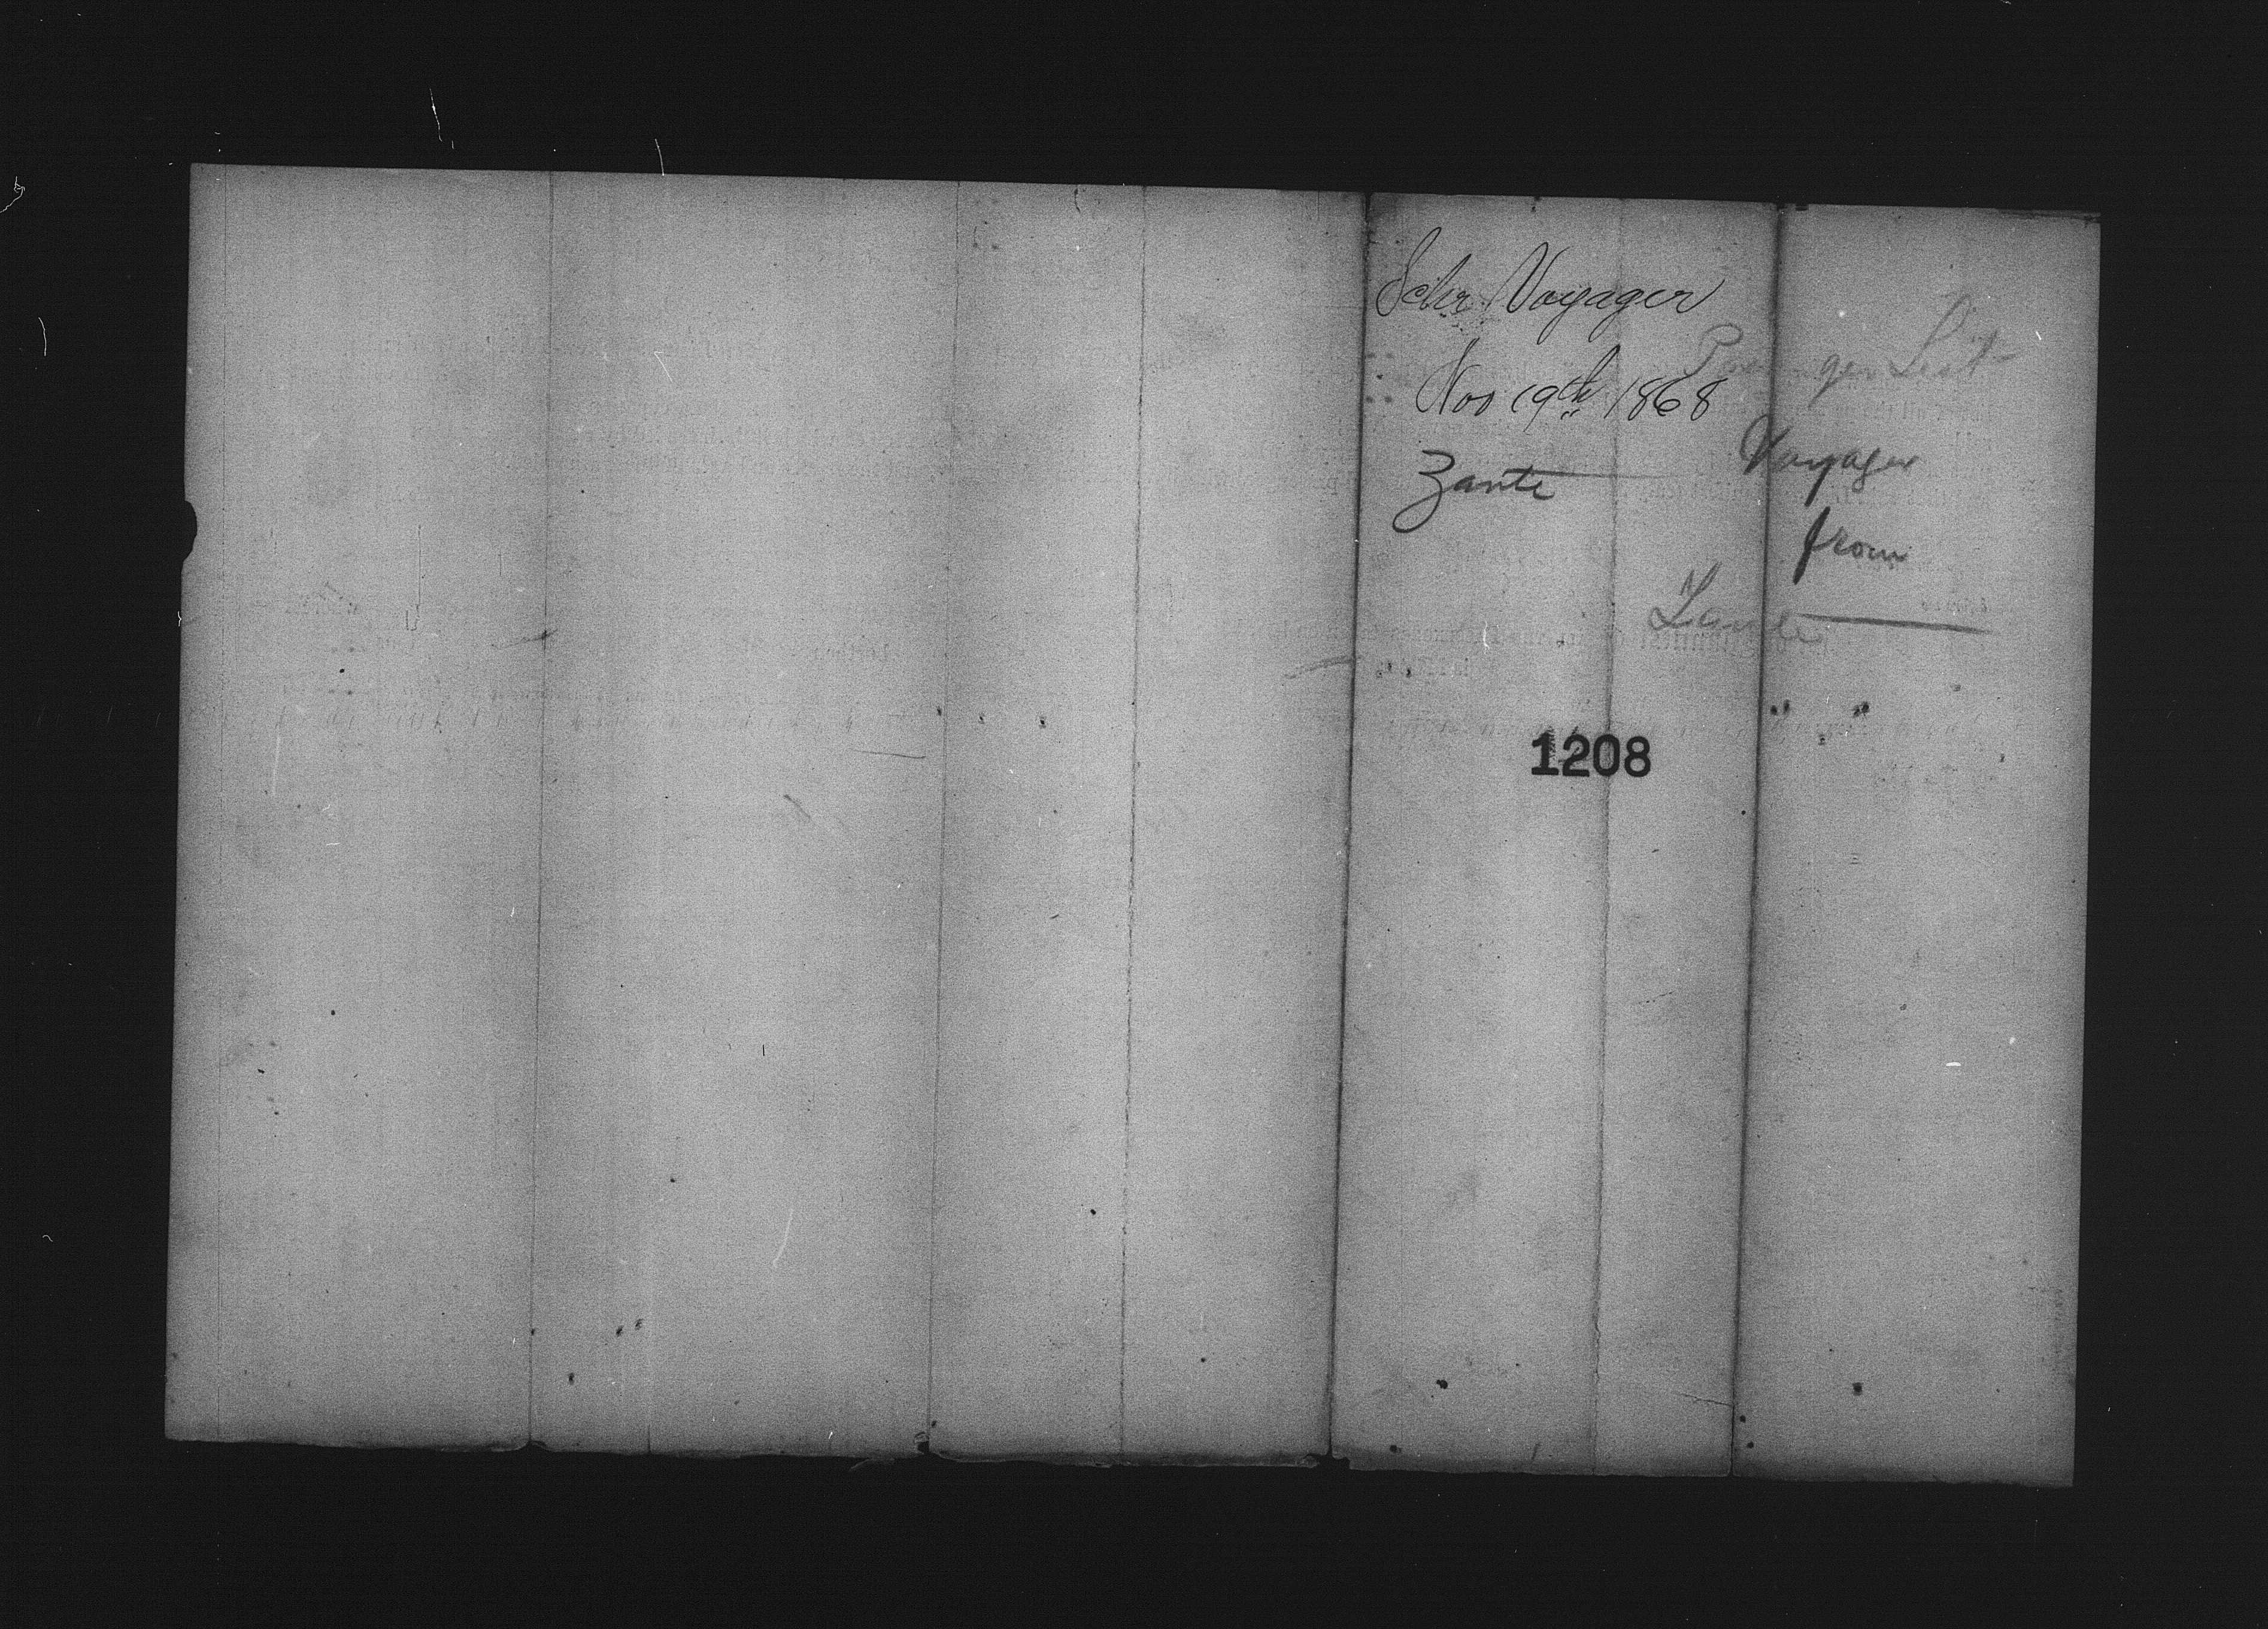 Schr Voyager
Nov 19th 1868
Zante
Passenger List
Voyager
from
Zante
1208